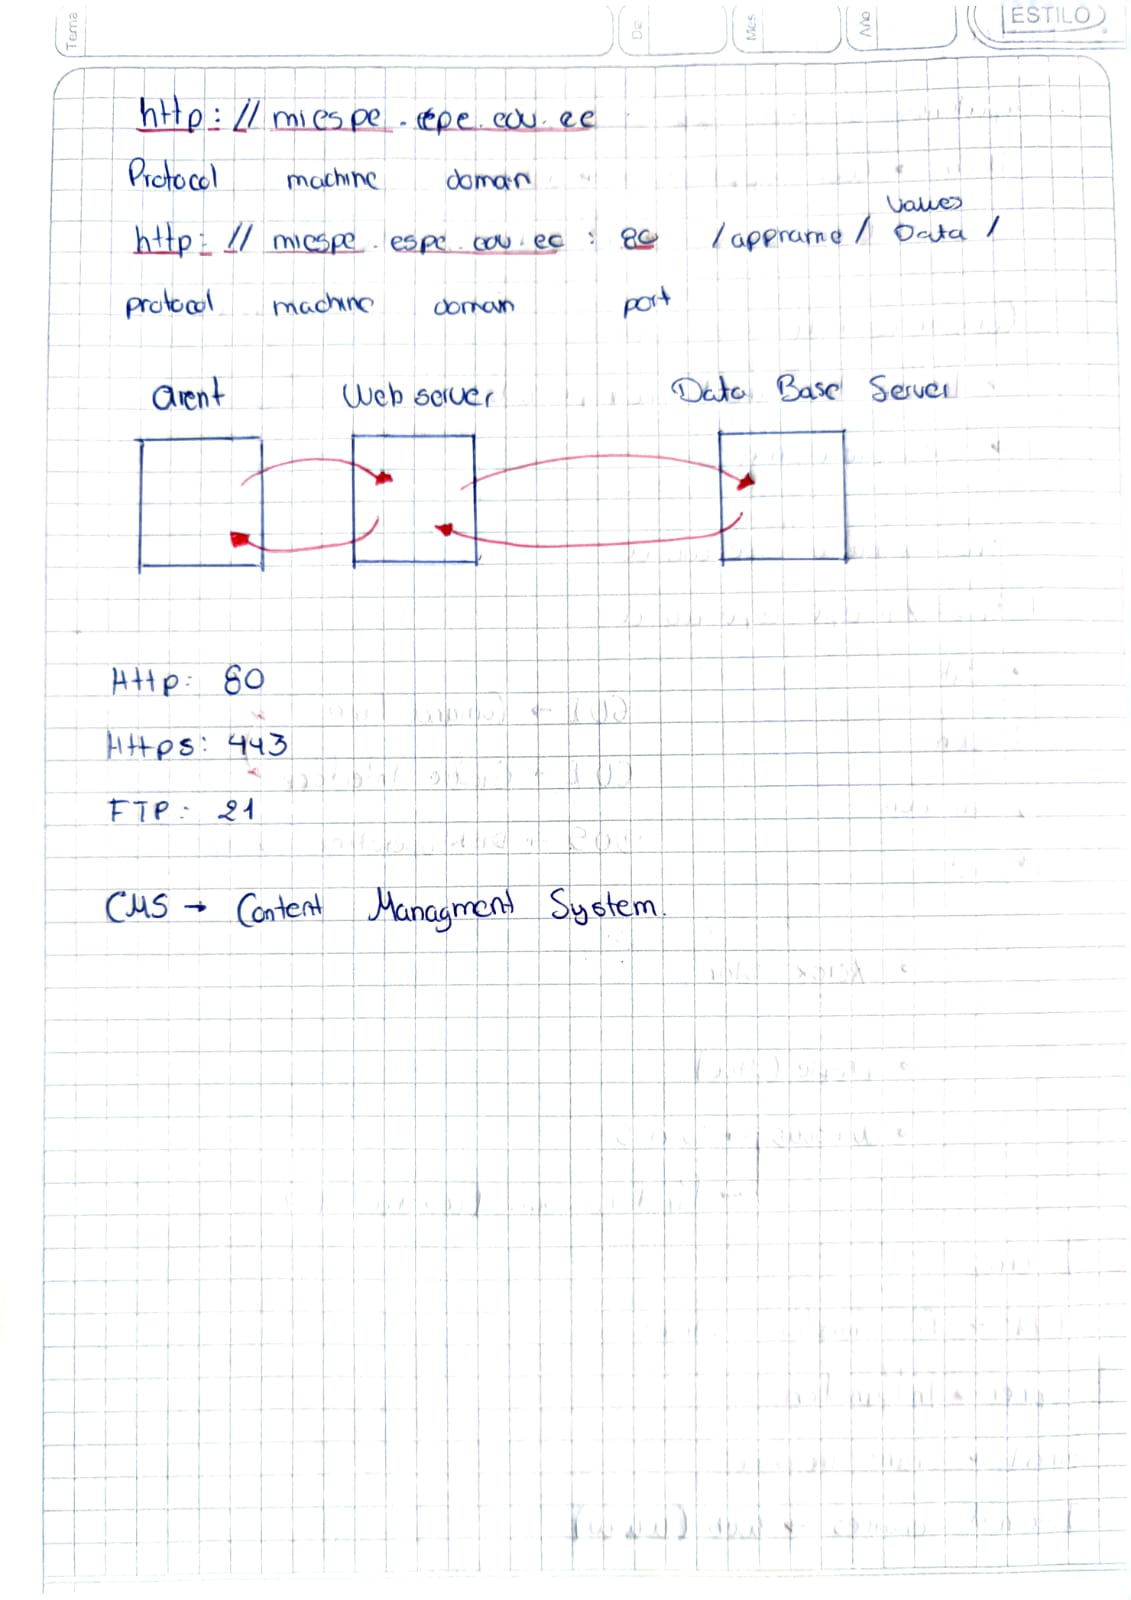 Tema
Día
Mes
Año
ESTILO
http: // miespe . espe. edu. ec
Protocol machine domain
values
http: // miespe . espe . edu . ec : 80 / appname / Data /
protocol machine domain port
client Web server Data Base Server
Http: 80
Https: 443
FTP: 21
CMS → Content Managment System.